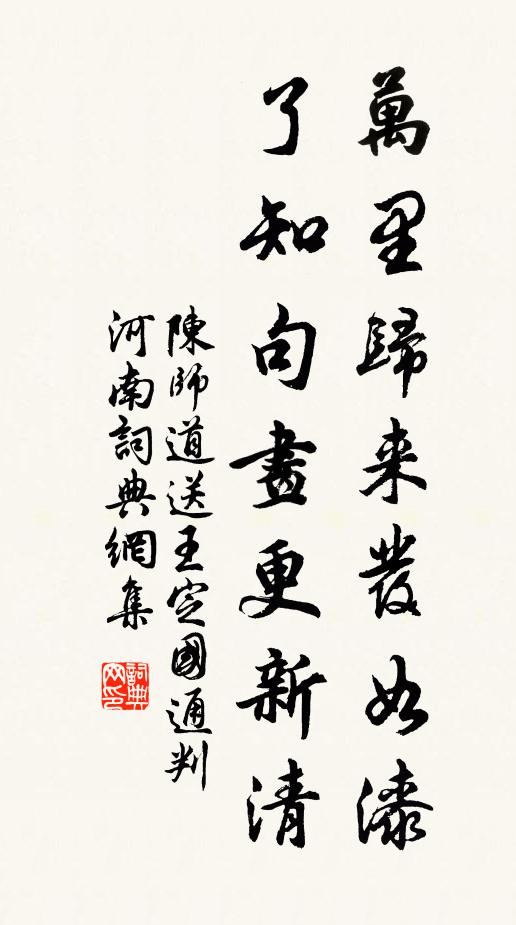 萬里歸来發如漆
了知句畫更新清
陳師道送王定國通判
河南詞典網集
詞典
网印